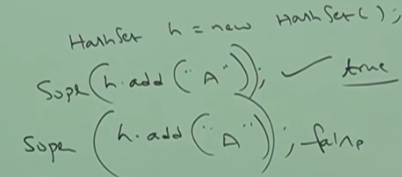 HashSet h = new HashSet();
Sopln(h.add("A")); ✓ true
Sopln(h.add("A"); false